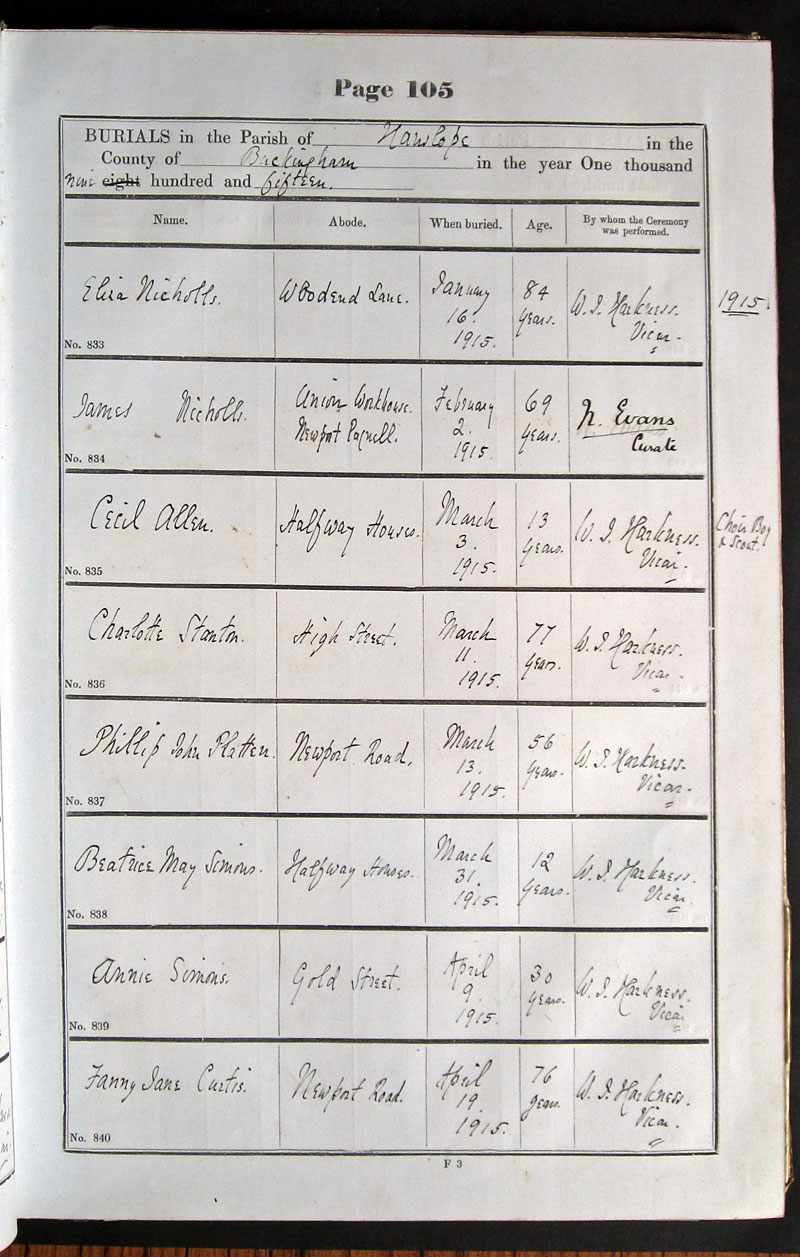 Page 105
BURIALS in the Parish of Hanslope in the
County of Buckingham in the year One thousand
nine eight hundred and fifteen.
Name. Abode. When buried. Age. By whom the Ceremony was performed.
Eliza Nicholls. Woodend Lane. January 84 W. J. Harkness.
16. years. Vicar.
1915.
No. 833
1915.
James Nicholls. Union Workhouse. February 69 N. Evans
Newport Pagnell. 2. years. Curate
1915.
No. 834
Cecil Allen. Halfway Houses. March 13 W. J. Harkness.
3. years. Vicar.
1915.
No. 835
Choir Boy
& Scout.
Charlotte Stanton. High Street. March 77 W. J. Harkness.
11. years. Vicar.
1915.
No. 836
Phillip John Platten. Newport Road. March 56 W. J. Harkness.
13. years. Vicar.
1915.
No. 837
Beatrice May Simons. Halfway Houses. March 12 W. J. Harkness.
31. years. Vicar.
1915.
No. 838
Annie Simons. Gold Street. April 30 W. J. Harkness.
9. years. Vicar
1915.
No. 839
Fanny Jane Curtis. Newport Road. April 76 W. J. Harkness.
19. years. Vicar.
1915.
No. 840
F 3